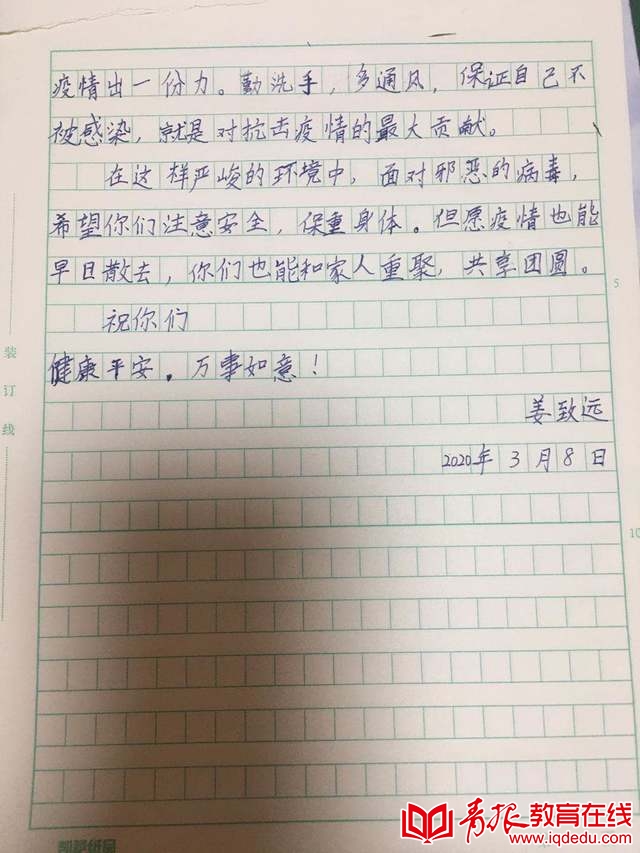 疫情出一份力。勤洗手，多通风，保证自己不
被感染，就是对抗击疫情的最大贡献。
在这样严峻的环境中，面对邪恶的病毒，
希望你们注意安全，保重身体。但愿疫情也能
早日散去，你们也能和家人重聚，共享团圆。
5
祝你们
装订线
健康平安，万事如意！
姜致远
2020年3月8日
10
青报教育在线
www.iqdedu.com